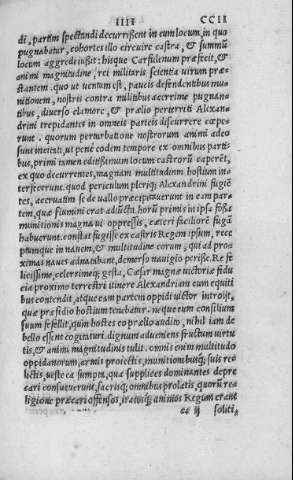 IIII CCII
di, partim spectandi decurrissent in eum locum, in quo
pugnabatur, cohortes illo circuire castra, & summũ
locum aggredi iußit: hisque Carfulenum præfecit, &
animi magnitudine, rei militaris scientia uirum præ-
stantem. quo ut uentum est, paucis defendentibus mu-
nitionem, nostris contra militibus acerrime pugnan-
tibus, diuerso clamore, & prælio perterriti Alexan-
drini trepidantes in omneis parteis discurrere cœpe-
runt. quorum perturbatione nostrorum animi adeo
sunt incitati, ut penè eodem tempore ex omnibus parti-
bus, primi tamen editißimum locum castrorũ caperẽt,
ex quo decurrentes, magnam multitudinem hostium in-
terfecerunt. quod periculum pleriq; Alexandrini fugiẽ-
tes, aceruatim se de uallo præcipitauerunt in eam par-
tem, quæ flumini erat adiũcta. horũ primis in ipsa fossa
munitionis magna ui oppressis, cæteri faciliorẽ fugã
habuerunt. constat fugisse ex castris Regem ipsum, rece
ptumque in nauem, & multitudine eorum, qui ad pro-
ximas naues adnatabant, demerso nauigio perisse. Re fe
licißime, celerrimeq; gesta, Cæsar magnæ uictoriæ fidu
cia proximo terrestri itinere Alexandriam cum equiti
bus contendit, atque eam partem oppidi uictor introijt,
quæ præsidio hostium tenebatur. neque eum consilium
suum fefellit, quin hostes eo prælio audito, nihil iam de
bello essent cogitaturi. dignum adueniens fructum uirtu
tis, & animi magnitudinis tulit. omnis enim multitudo
oppidanorum, armis proiectis, munitionibusq; suis re-
lictis, ueste ea sumpta, qua supplices dominantes depre
cari consueuerunt, sacrisq; omnibus prolatis, quorũ re
ligione præcari offensos, iratosq; animos Regum erant
cc ij soliti,